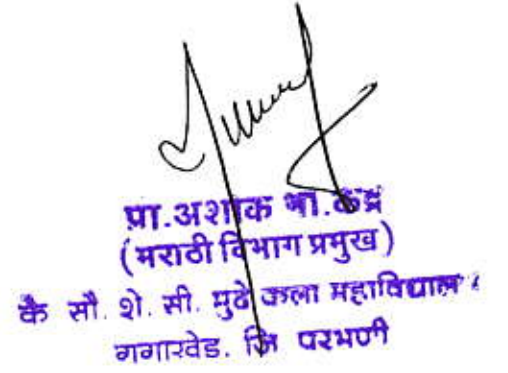 प्रा.अशाक भा.केंद्र
(मराठी विभाग प्रमुख)
कै सौ. शे. सी. मुढे कला महाविद्याल
गगारवेड. जि परभणी